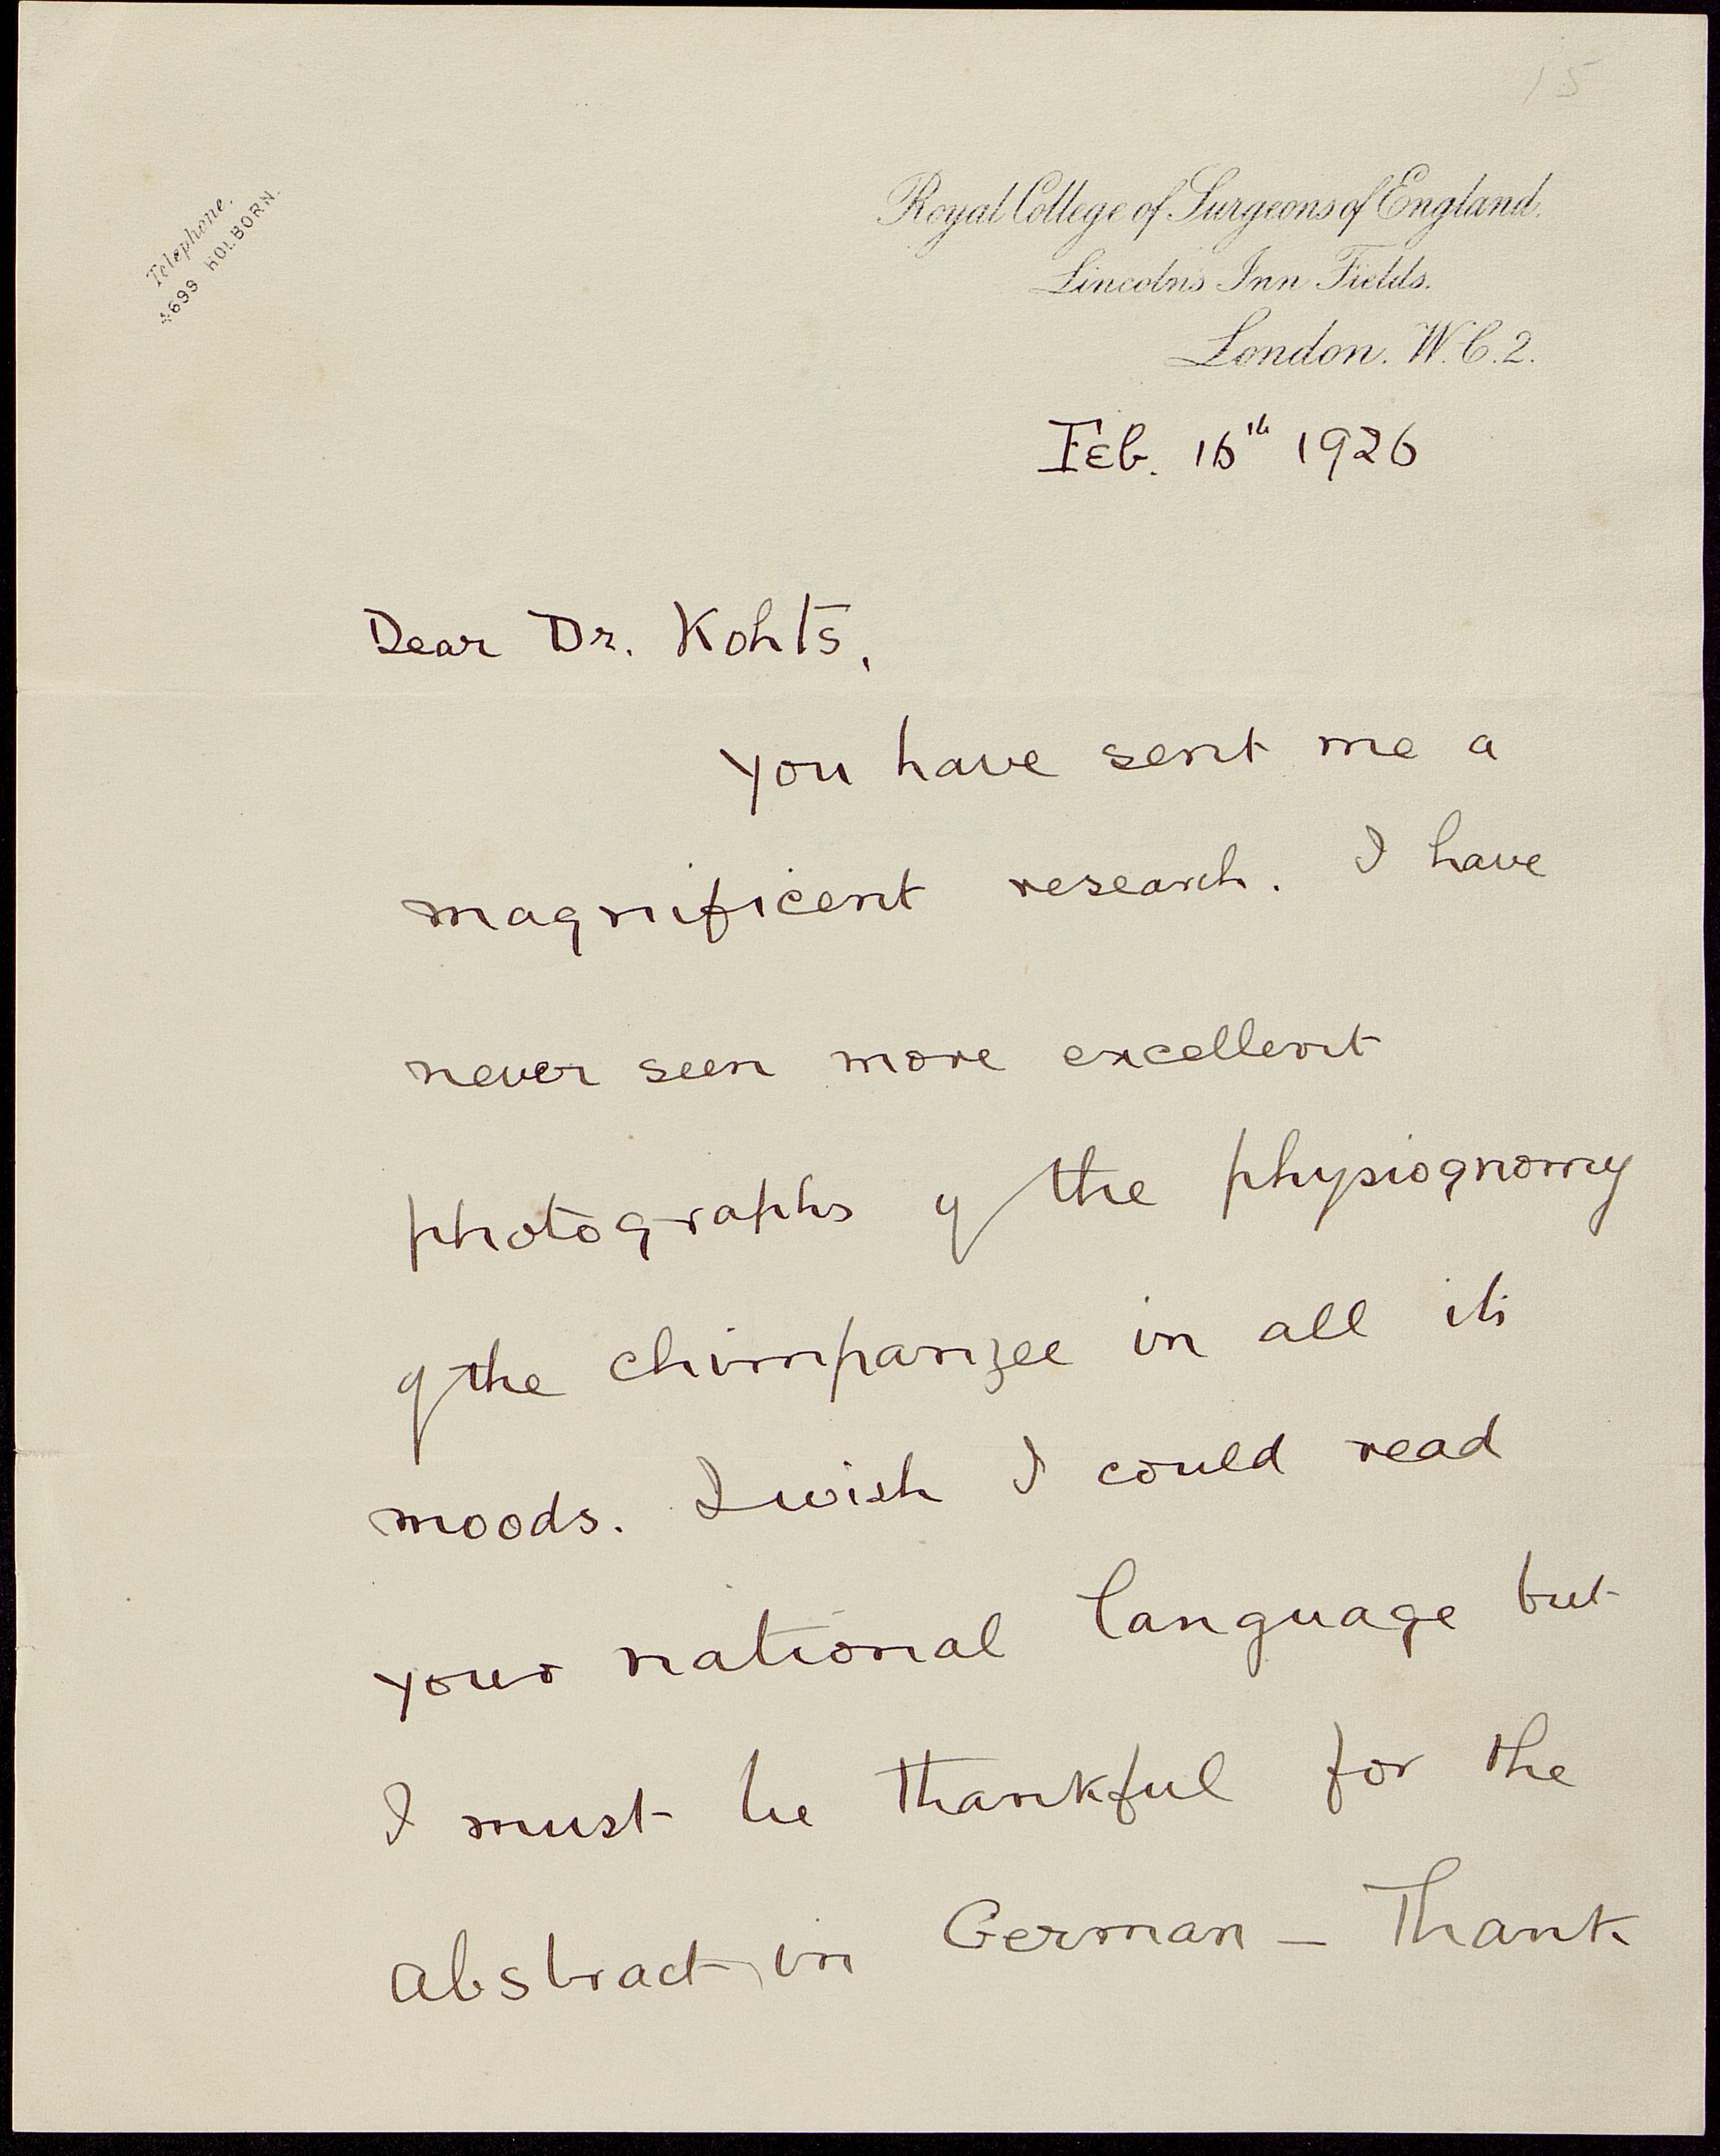 15
Telephone.
4699 HOLBORN.
Royal College of Surgeons of England.
Lincoln's Inn Fields.
London. W.C.2.
Feb. 16th 1926
Dear Dr. Kohts,
You have sent me a
magnificent research. I have
never seen more excellent
photographs of the physiognomy
of the chimpanzee in all its
moods. I wish I could read
your national language but
I must be thankful for the
abstract in German — Thank